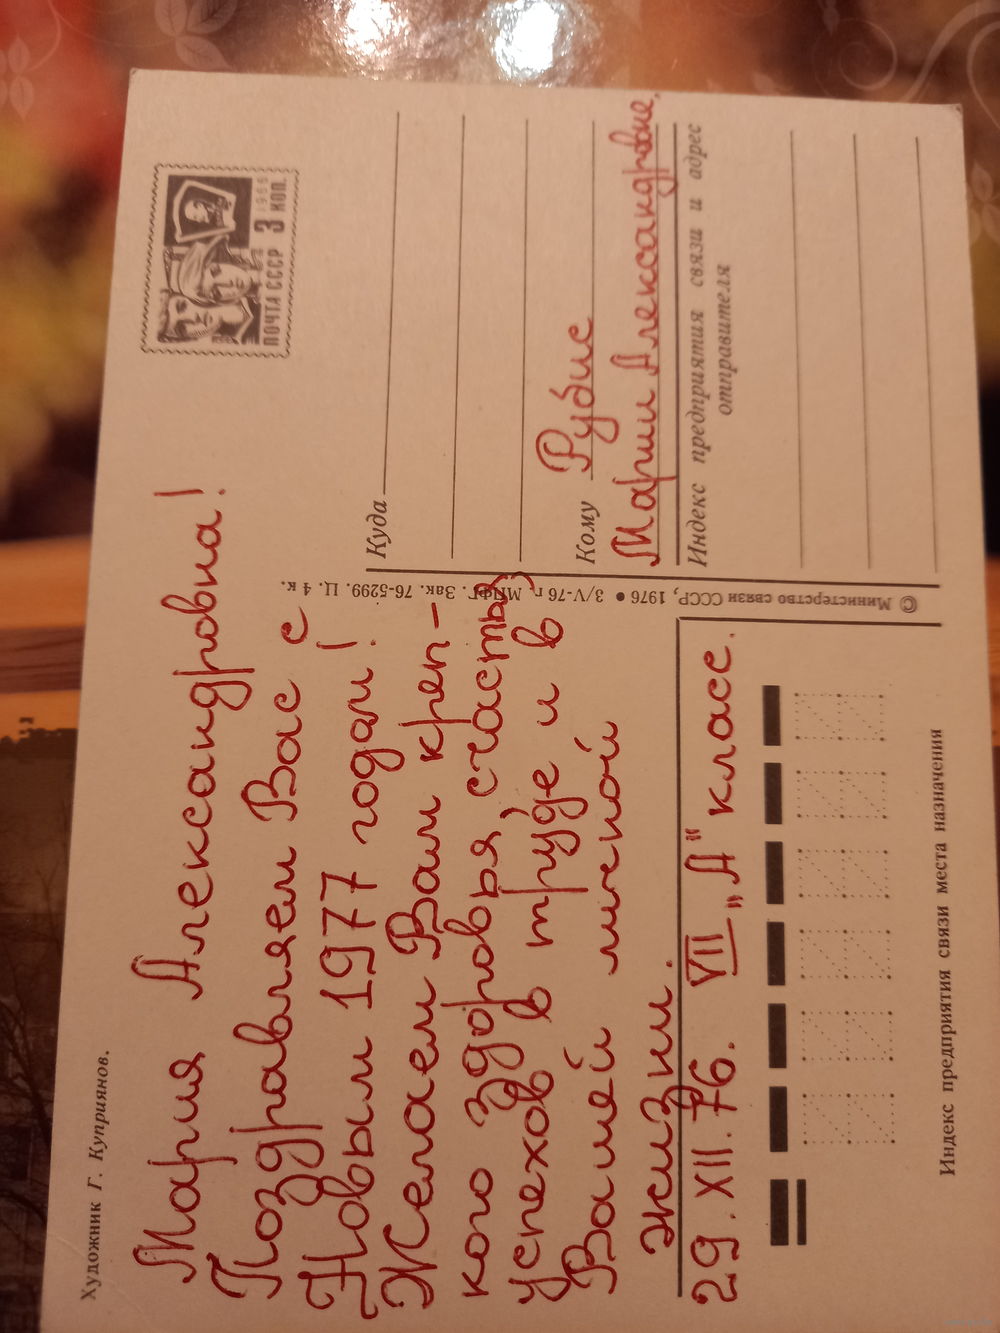 Художник Г. Куприянов.
Мария Александровна!
Поздравляем Вас с
Новым 1977 годом!
Желаем Вам креп-
кого здоровья, счастья,
успехов в труде и в
Вашей личной
жизни.
29. XII. 76. VII „А" класс.
Индекс предприятия связи места назначения
© Министерство связи СССР, 1976 • 3/V-76 г. МПФГ. Зак. 76-5299. Ц. 4 к.
ПОЧТА СССР 3 КОП.
1966
Куда
Кому Рубис
Марии Александровне,
Индекс предприятия связи и адрес
отправителя